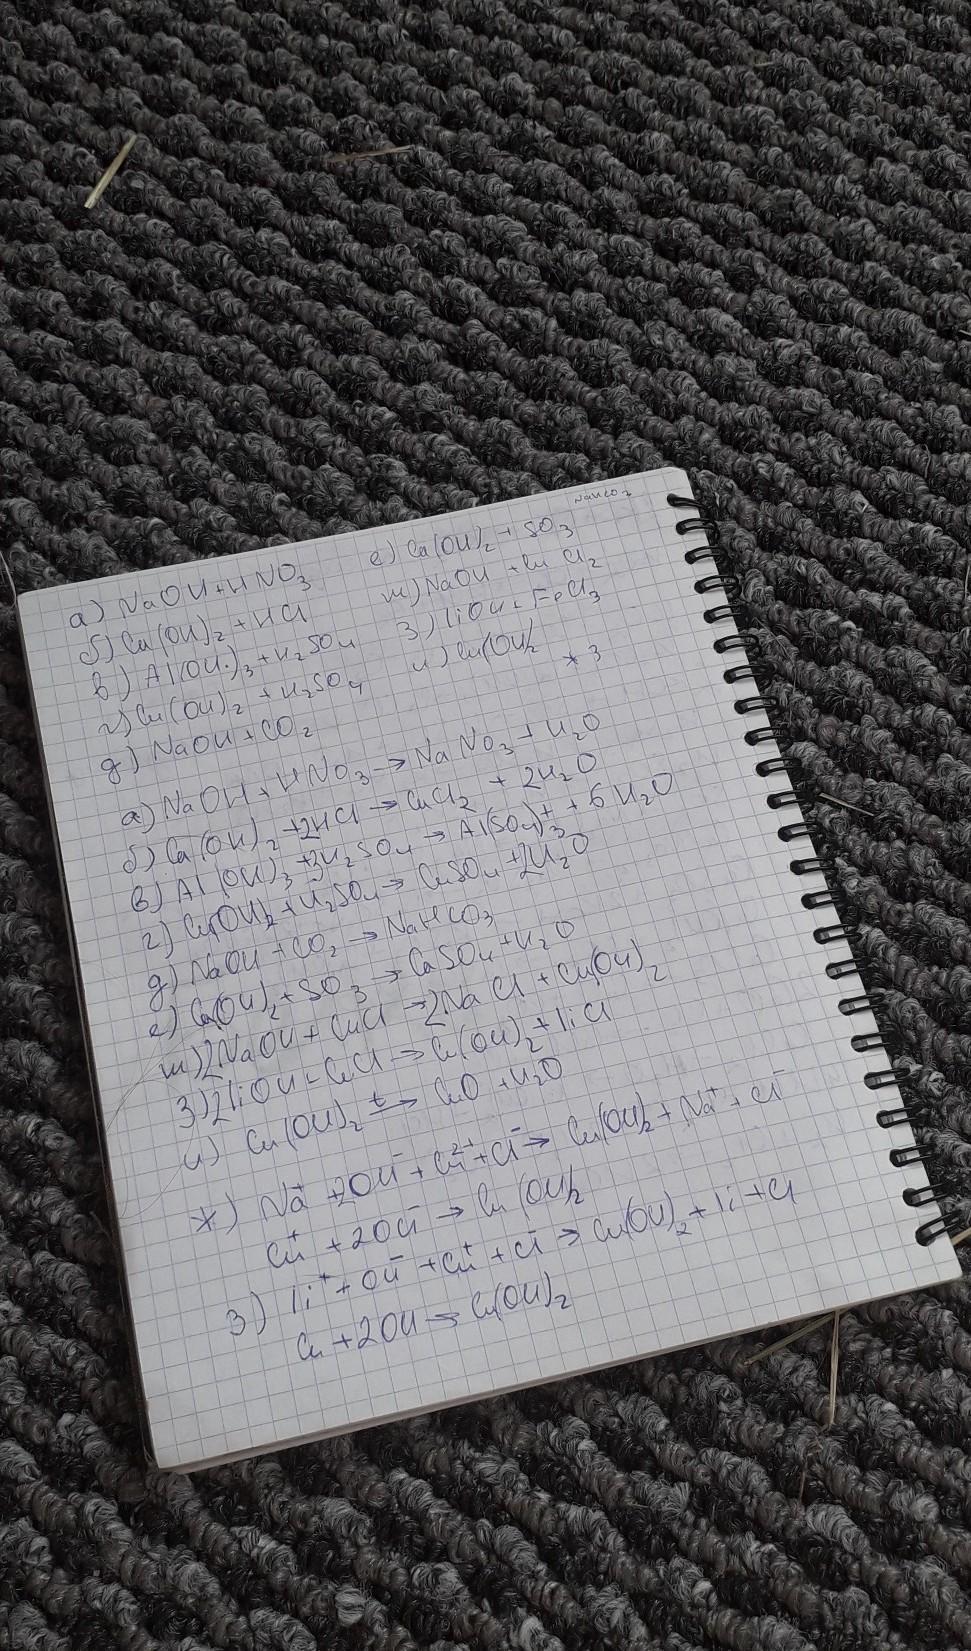 NaHCO3
а) NaOH + HNO3
б) Cu(OH)2 + HCl
в) Al(OH)3 + H2SO4
г) Cu(OH)2 + H2SO4
д) NaOH + CO2
е) Ca(OH)2 + SO3
ж) NaOH + CuCl2
з) LiOH + FeCl3
и) Cu(OH)2
* 3
а) NaOH + HNO3 → NaNO3 + H2O
б) Cu(OH)2 + 2HCl → CuCl2 + 2H2O
в) Al(OH)3 + 3H2SO4 → Al(SO4)3 + 6H2O
г) Cu(OH)2 + H2SO4 → CuSO4 + 2H2O
д) NaOH + CO2 → NaHCO3
е) Ca(OH)2 + SO3 → CaSO4 + H2O
ж) 2NaOH + CuCl → 2NaCl + Cu(OH)2
з) 2LiOH + CuCl → Cu(OH)2 + LiCl
и) Cu(OH)2 t→ CuO + H2O
ж) Na+ + 2OH- + Cu2+ + Cl- → Cu(OH)2 + Na+ + Cl-
Cu+ + 2OH- → Cu(OH)2
з) Li+ + OH- + Cu+ + Cl- → Cu(OH)2 + Li + Cl
Cu + 2OH → Cu(OH)2